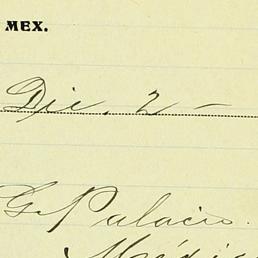 MEX.
Dic. 2 -
G. Palacio.
Méxi